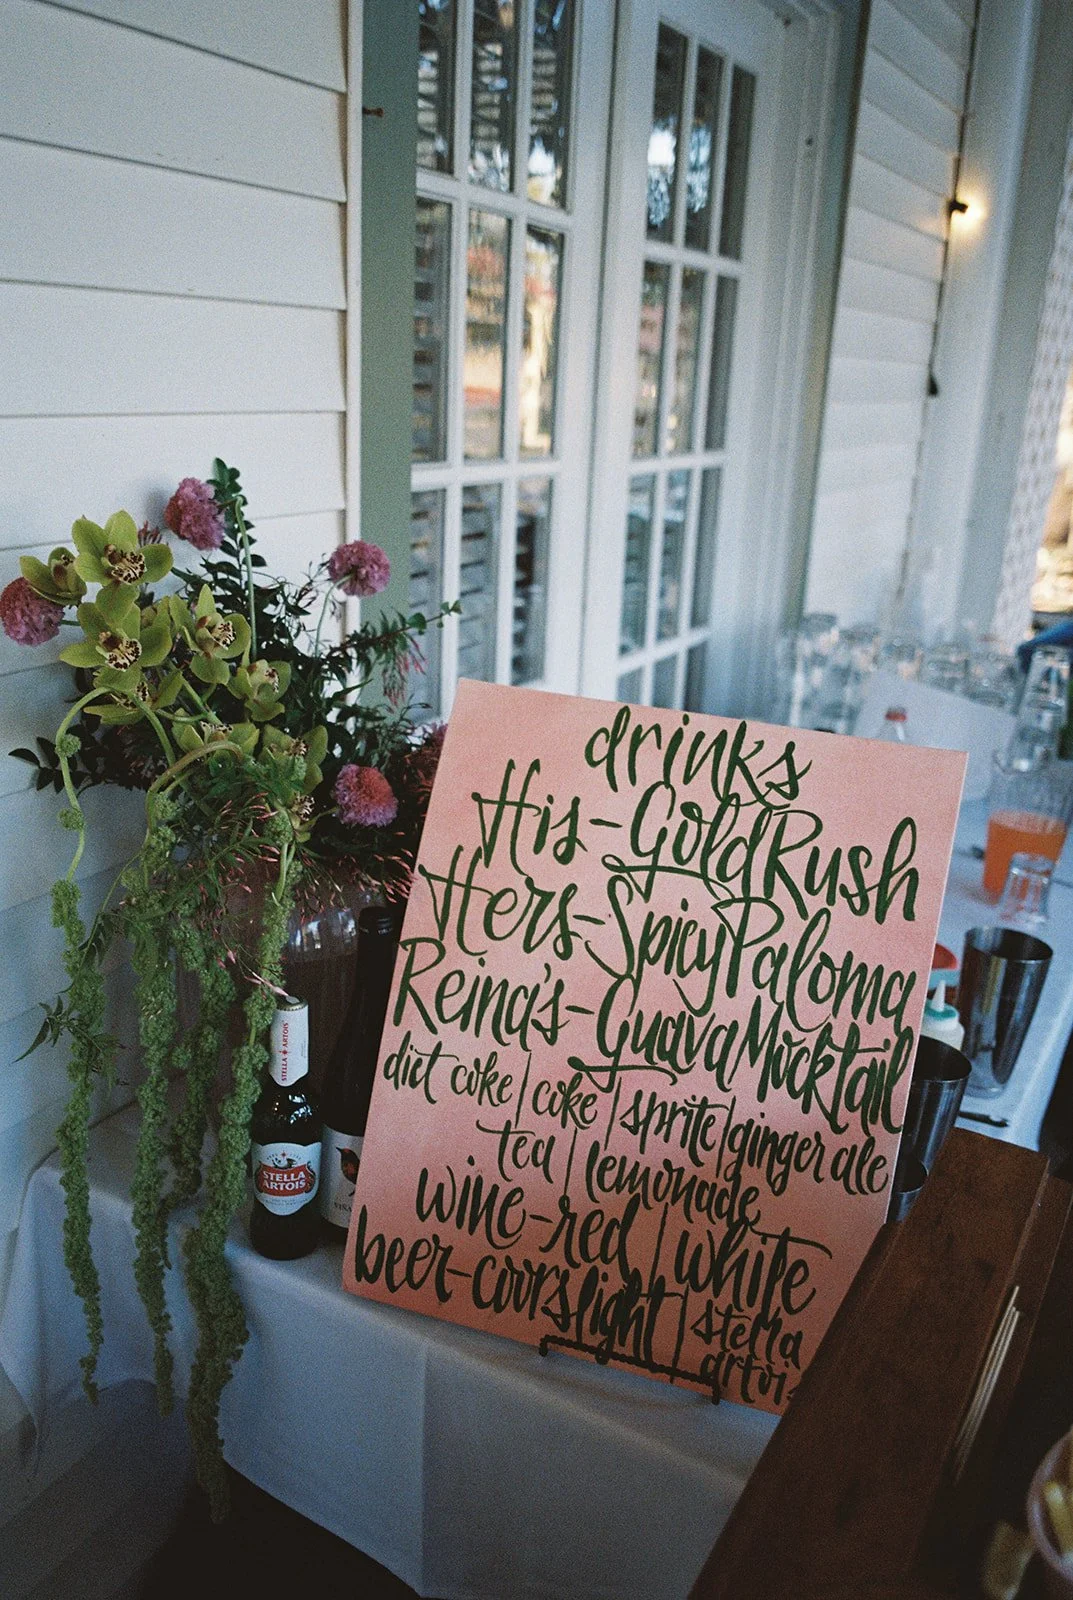 drinks
His-Gold Rush
Hers-Spicy Paloma
Reina's-Guava Mocktail
diet coke | coke | sprite | ginger ale
tea | lemonade
wine-red | white
beer-coors light | stella
artois
STELLA ARTOIS
STELLA
ARTOIS